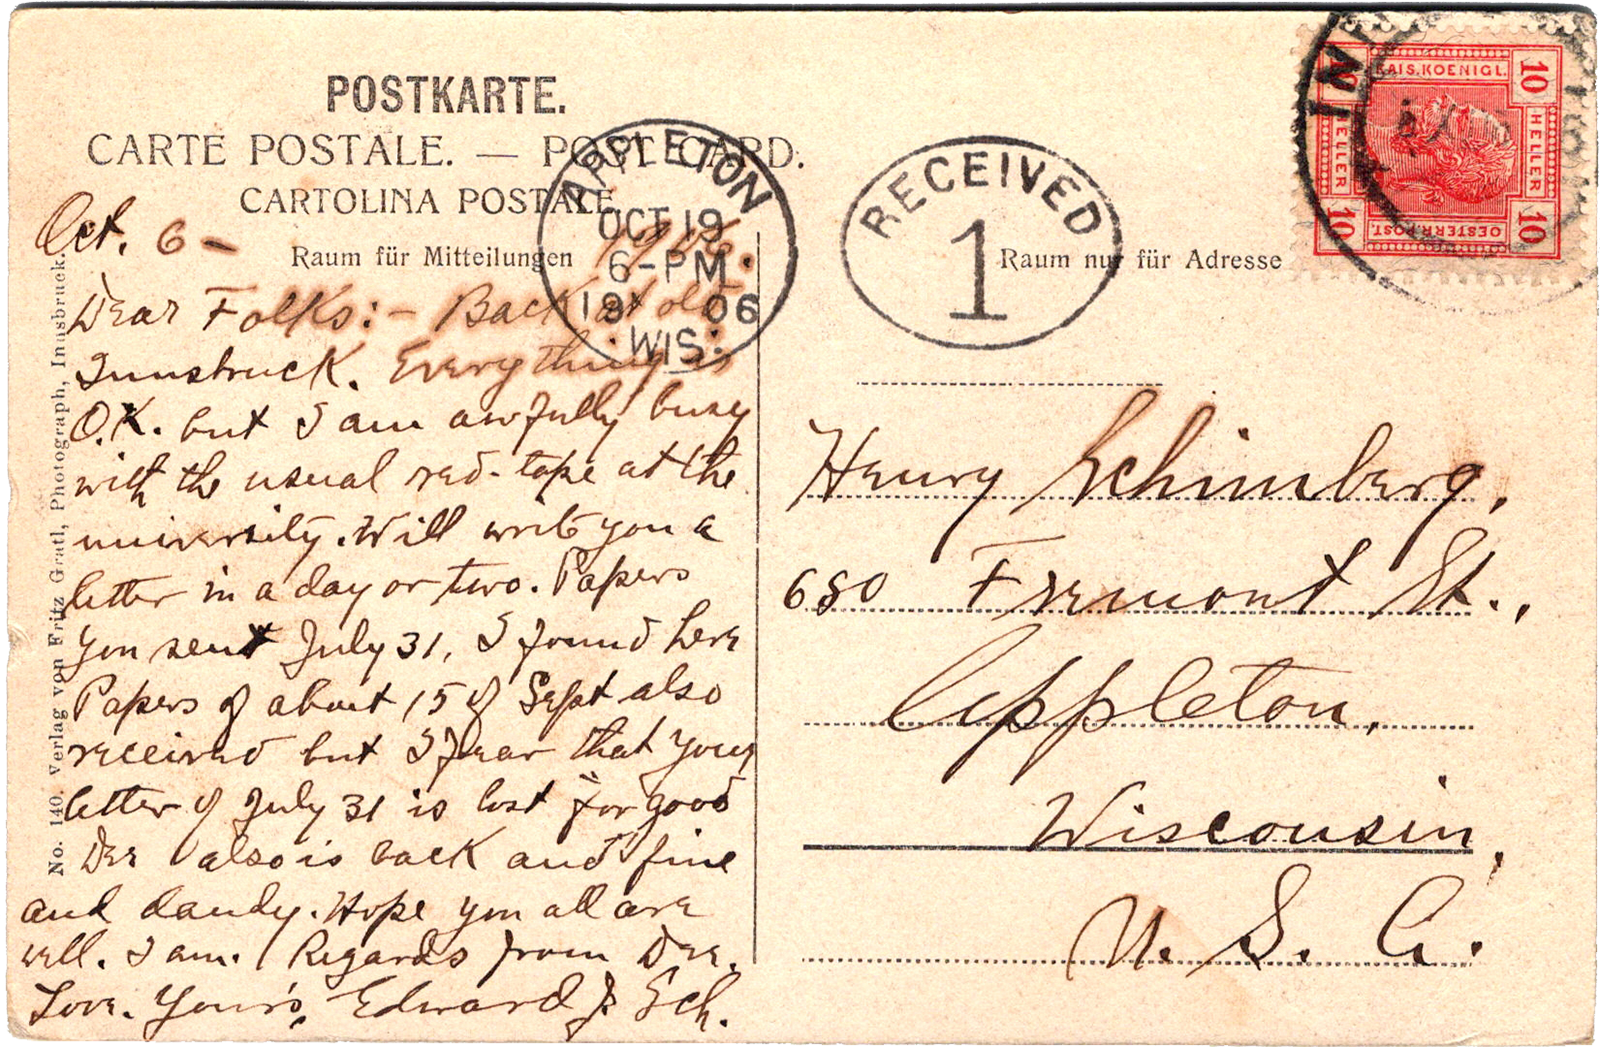 POSTKARTE.
CARTE POSTALE. — POST CARD.
CARTOLINA POSTALE.
Raum für Mitteilungen
Raum nur für Adresse
APPLETON
OCT 19
6-PM
19 06
WIS.
RECEIVED
1
INN
KAIS. KOENIGL.
10 10
HELLER HELLER
10 10
OESTERR. POST.
No. 140. Verlag von Fritz Gratl, Photograph, Innsbruck.
Oct. 6 - 1906.
Dear Folks:- Back at old
Innsbruck. Everything is
O.K. but I am awfully busy
with the usual red-tape at the
university. Will write you a
letter in a day or two. Papers
you sent July 31, I found here
Papers of about 15 of Sept also
received but I fear that your
letter of July 31 is lost for good
Dee also is back and fine
and dandy. Hope you all are
well. I am. Regards from Dee.
Love. Yours, Edward J. Sch.
Henry Schimberg,
680 Fremont St.,
Appleton,
Wisconsin,
U. S. A.